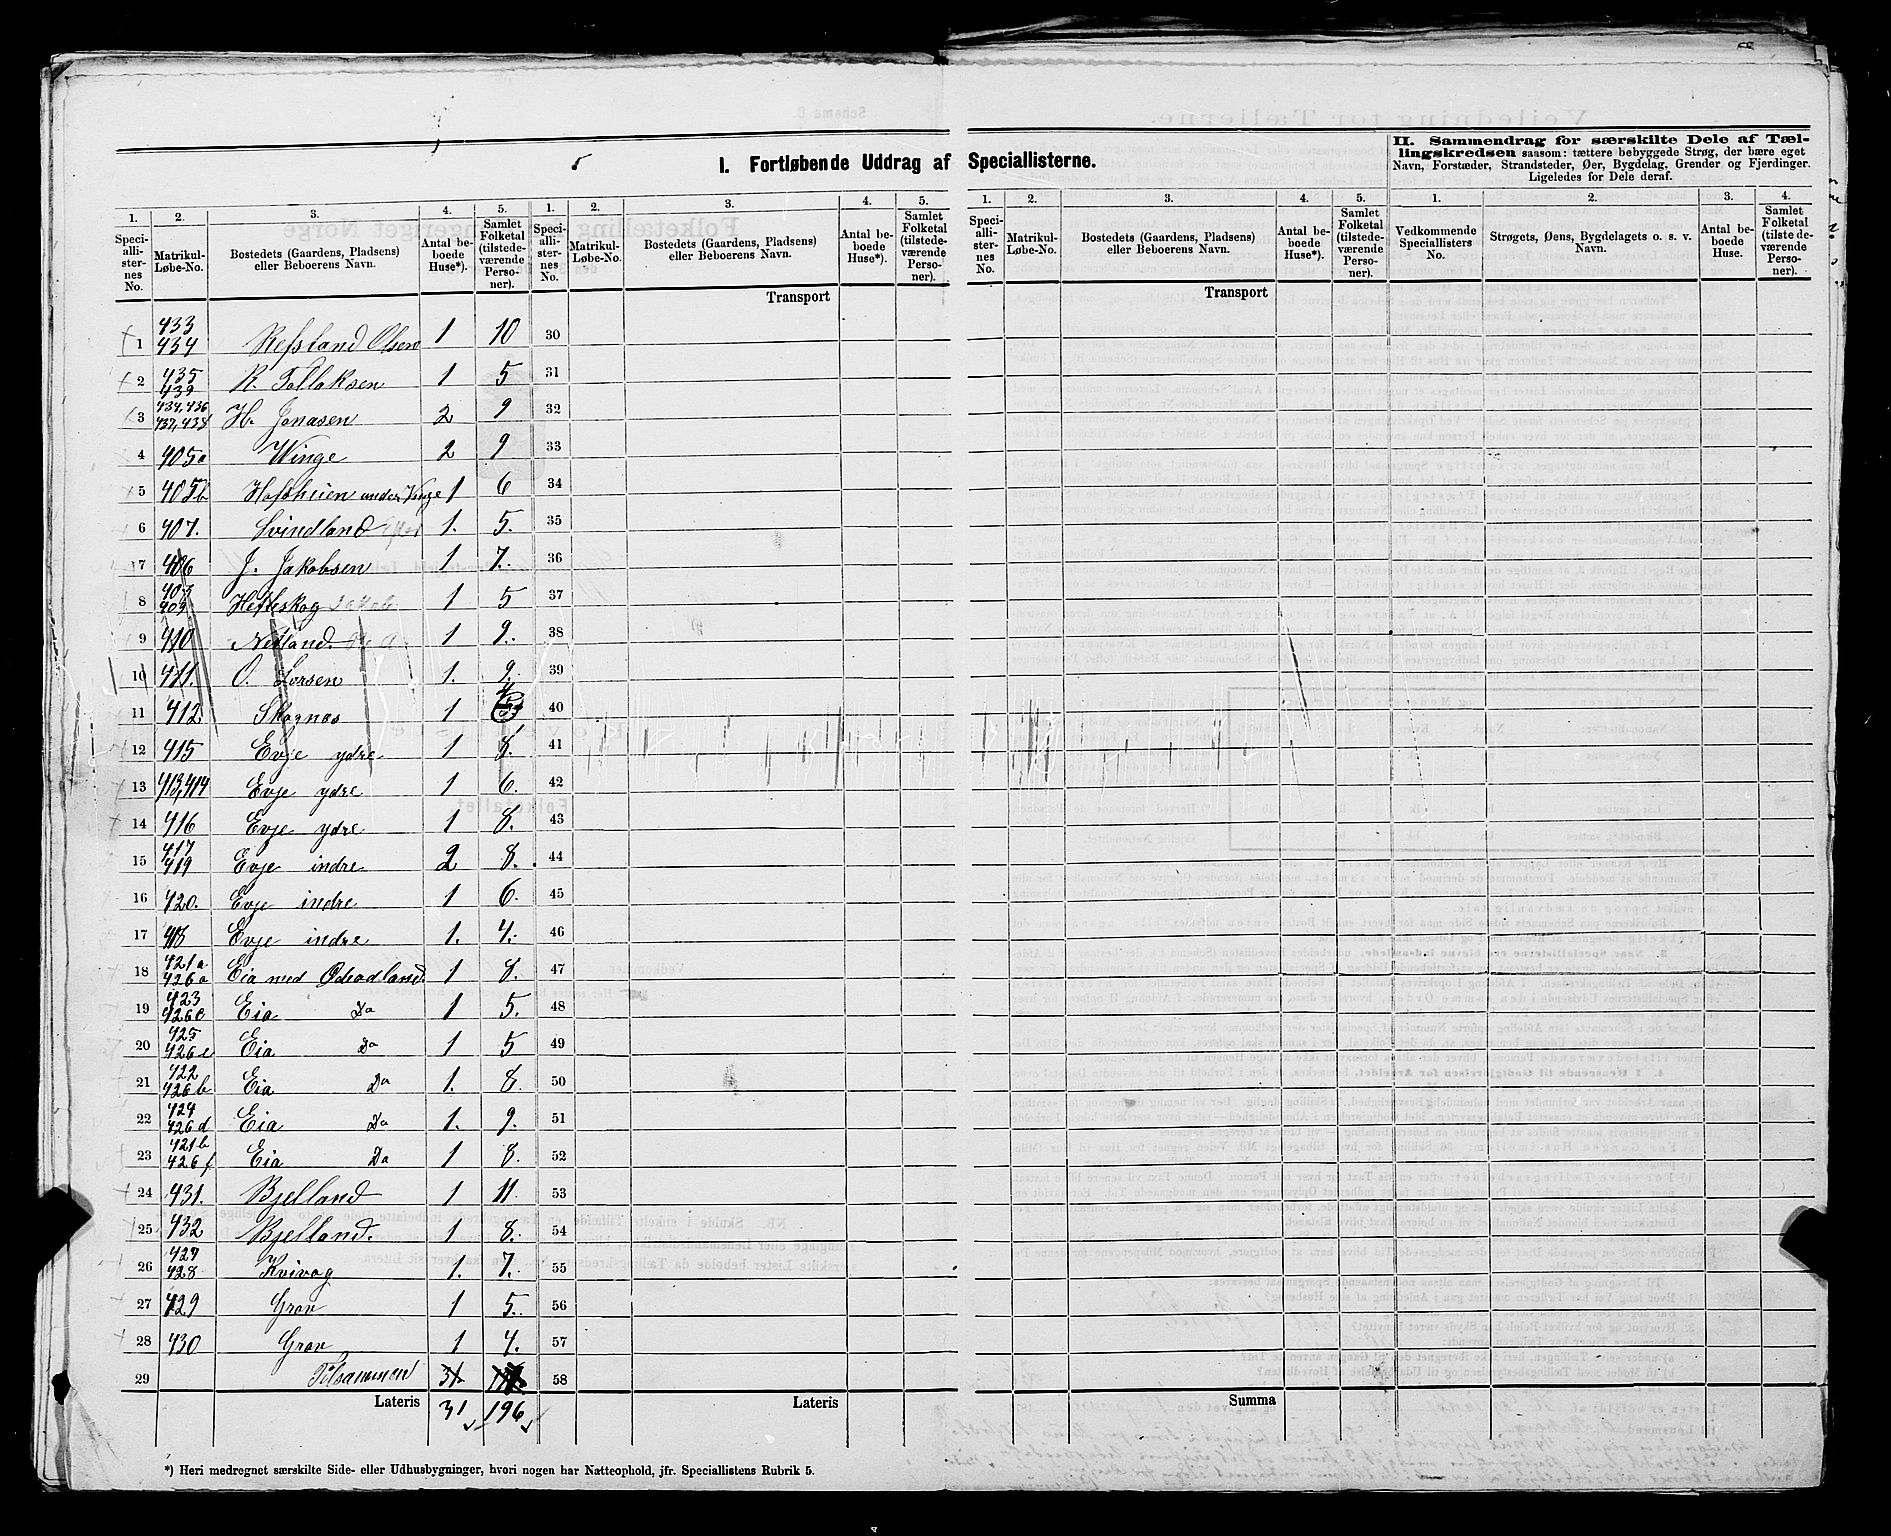 I. Fortløbende Uddrag af Speciallisterne.
II. Sammendrag for særskilte Dele af Tællingskredsen saasom: tættere bebyggede Strøg, der bære eget
Navn, Forstæder, Strandsteder, Øer, Bygdelag, Grender og Fjerdinger.
Ligeledes for Dele deraf.
1. 2. 3. 4. 5. 1. 2. 3. 4. 5. 1. 2. 3. 4. 5. 1. 2. 3. 4.
Speciallisternes No. Matrikul-Løbe-No. Bostedets (Gaardens, Pladsens) eller Beboerens Navn. Antal beboede Huse*). Samlet Folketal (tilstedeværende Personer).
Speciallisternes No. Matrikul-Løbe-No. Bostedets (Gaardens, Pladsens) eller Beboerens Navn. Antal beboede Huse*). Samlet Folketal (tilstedeværende Personer).
Speciallisternes No. Matrikul-Løbe-No. Bostedets (Gaardens, Pladsens) eller Beboerens Navn. Antal beboede Huse*). Samlet Folketal (tilstedeværende Personer).
Vedkommende Speciallisters No. Strøgets, Øens, Bygdelagets o. s. v. Navn. Antal beboede Huse. Samlet Folketal (tilstedeværende Personer).
Transport Transport
1 433 434 Refsland Olsen 1 10 30
2 435 439 R. Tollaksen 1 5 31
3 434, 436 437, 438 H. Jonasen 2 9 32
4 405a Winge 2 9 33
5 405b Hofsheien under Vinge 1 6 34
6 407. Svindland 1. 5. 35
7 406 J. Jakobsen 1 7. 36
8 409 Hetleskog 1 5 37
9 410 Netland 1 9. 38
10 411. O. Larsen 1. 9. 39
11 412 Skognæs 1 40
12 415 Evje ydre 1 8. 41
13 413, 414 Evje ydre 1 6. 42
14 416 Evje ydre 1 8. 43
15 417 419 Evje indre 2 8. 44
16 420. Evje indre 1 6. 45
17 418 Evje indre 1. 4. 46
18 421a 426a Eia med Ødeadland. 1 8. 47
19 423 426c Eia Do 1 5. 48
20 425 426e Eia Do 1 5 49
21 422 426b Eia Do 1. 8. 50
22 424 426d Eia Do 1. 9. 51
23 421b 426f Eia Do 1 8. 52
24 431. Bjelland 1 11. 53
25 432 Bjelland. 1 8. 54
26 427 428 Kvivog 1. 7. 55
27 429 Grov 1 5. 56
28 430 Grov 1 4. 57
29 Tilsammen 58
Lateris 31 196 Lateris Summa
*) Heri medregnet særskilte Side- eller Udhusbygninger, hvori nogen har Natteophold, jfr. Speciallistens Rubrik 5.